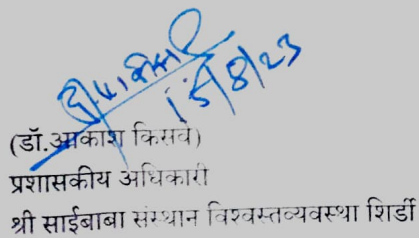 15/8/23
(डॉ.आकाश किसवे)
प्रशासकीय अधिकारी
श्री साईबाबा संस्थान विश्वस्तव्यवस्था शिर्डी